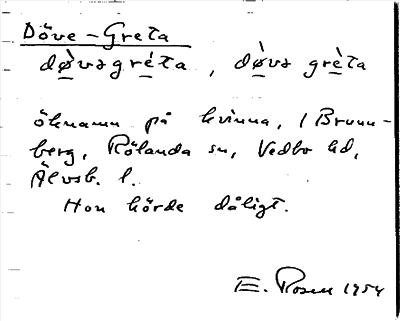 Döve-Greta
dø̀vsgrèta, dø̀vs grèta
öknamn på kvinna, i Brunn-
berg, Rölanda sn, Vedbo hd,
Älvsb. l.
Hon hörde dåligt.
E. Rosén 1954